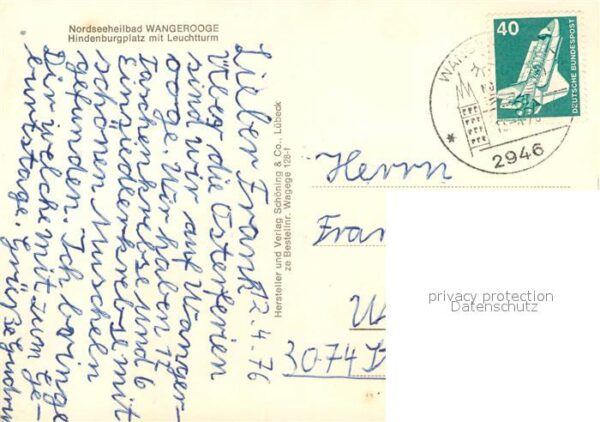 Nordseeheilbad WANGEROOGE
Hindenburgplatz mit Leuchtturm
12.4.76
Lieber Frank!
Weeg die Osterferien
sind wir auf Wanger-
ooge. Wir haben 17
Taschenkrebse und 6
Einsiedlerkrebse mit
schönen Muscheln
gefunden. Ich bringe
Dir welche mit zum Ge-
burtstage. Grüße Gudrun
Hersteller und Verlag Schöning & Co., Lübeck
ze Bestellnr. Wagege 128-f
40
DEUTSCHE BUNDESPOST
2946
Herrn
Fran
W
3074
privacy protection
Datenschutz